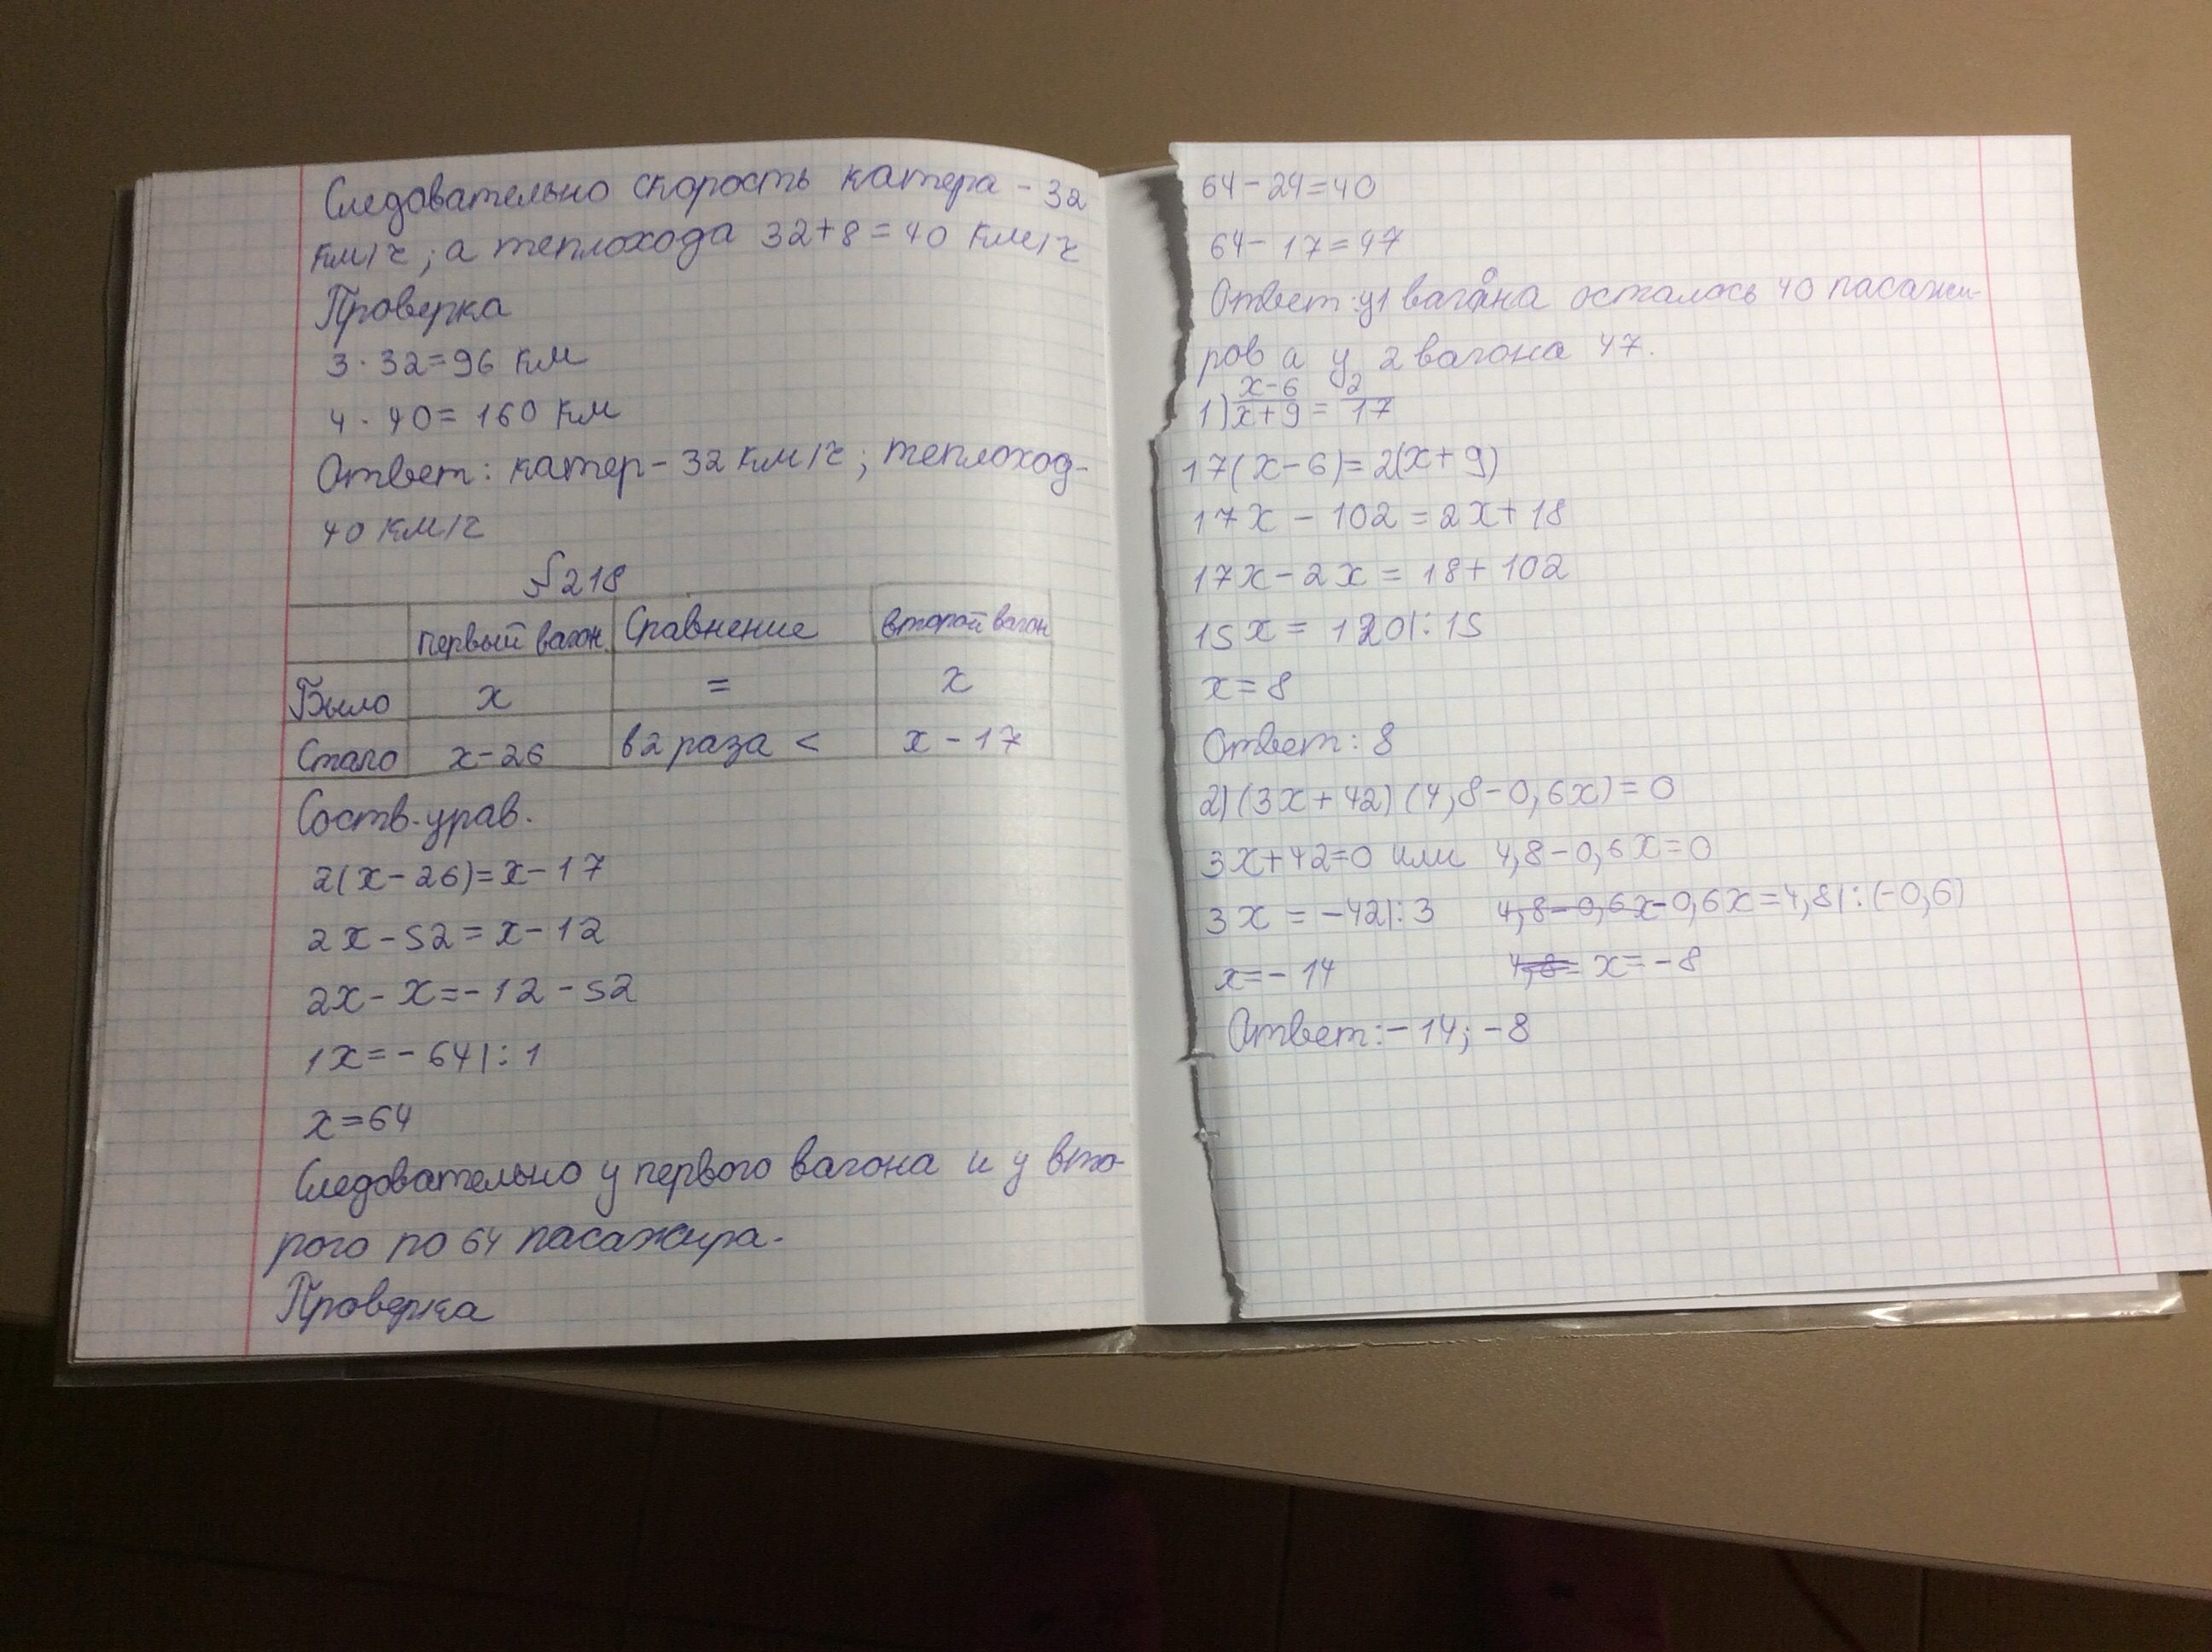 Следовательно скорость катера - 32
км/ч ; а теплохода 32+8=40 км/ч
Проверка
3 · 32=96 км
4 · 40= 160 км
Ответ: катер - 32 км/ч ; теплоход-
40 км/ч
№218
первый вагон Сравнение второй вагон
Было x = x
Стало x-26 в 2 раза < x - 17
Соств. урав.
2(x-26)=x-17
2x-52=x-12
2x-x=-12-52
1x=-64|:1
x=64
Следовательно у первого вагона и у вто-
рого по 64 пасажира.
Проверка
64-24=40
64-17=47
Ответ: у 1 вагона осталось 40 пасажи-
ров а у 2 вагона 47.
1) x-6/x+9 = 2/17
17(x-6)=2(x+9)
17x - 102 = 2x+18
17x-2x = 18+102
15x = 120|:15
x=8
Ответ: 8
2) (3x+42) (4,8-0,6x)=0
3x+42=0 или 4,8-0,6x=0
3x = -42|:3 4,8-0,6x -0,6x=4,8|:(-0,6)
x=-14 4,8= x=-8
Ответ: -14; -8